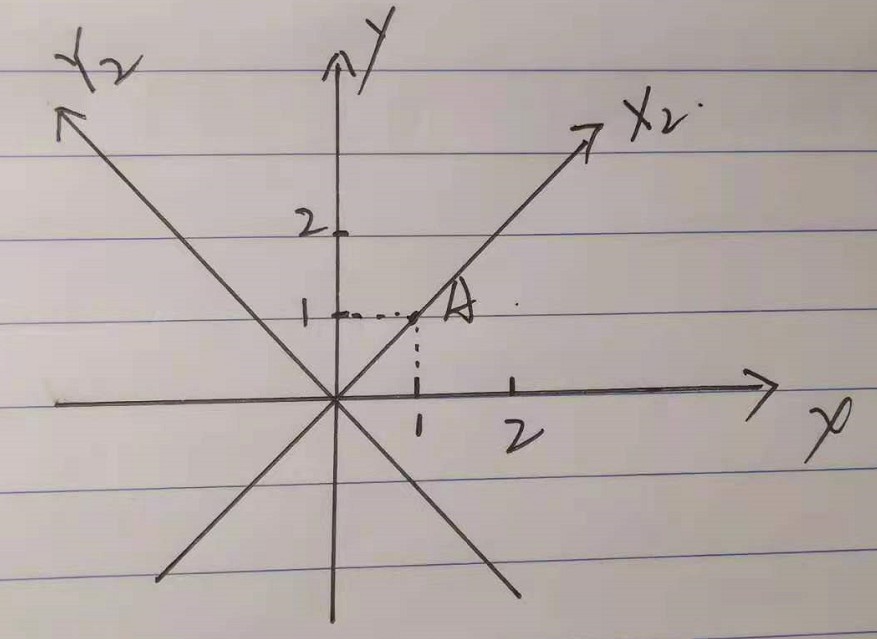 Y
Y2
X2
2
1
A
1
2
X